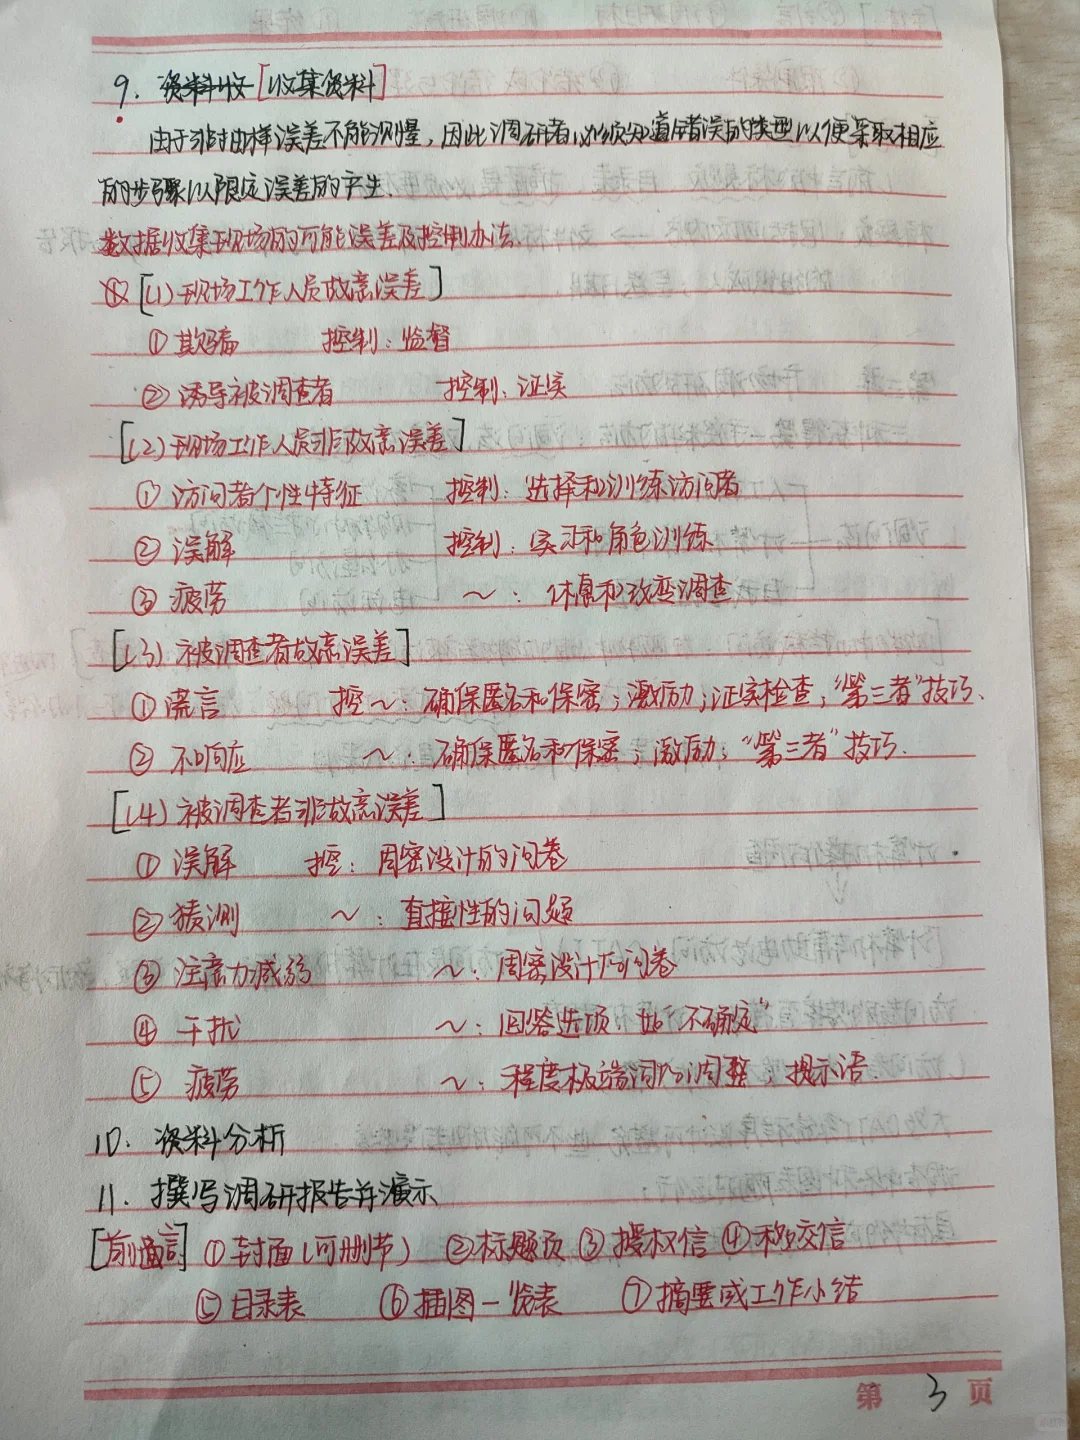 9. 资料收[收集资料]
由于非抽样误差不能测量，因此调研者必须知道错误的类型以便采取相应
的步骤以限定误差的产生.
数据收集现场的可能误差及控制办法.
[(1)现场工作人员故意误差]
①欺骗 控制：监督
②诱导被调查者 控制：证实
[(2)现场工作人员非故意误差]
①访问者个性特征 控制：选择和训练访问者
②误解 控制：实习和角色训练
③疲劳 ～：休息和改变调查
[(3)被调查者故意误差]
①谎言 控～：确保匿名和保密；激励；证实检查；“第三者”技巧.
②不响应 ～：确保匿名和保密；激励；“第三者”技巧.
[(4)被调查者非故意误差]
①误解 控：周密设计的问卷
②猜测 ～：直接性的问题
③注意力减弱 ～：周密设计的问卷
④干扰 ～：回答选项 如“不确定”
⑤疲劳 ～：程度极端词的调整；提示语.
10. 资料分析
11. 撰写调研报告并演示
[前言] ①封面(可删节) ②标题页 ③授权信 ④移交信
⑤目录表 ⑥插图一览表 ⑦摘要或工作小结
第 3 页